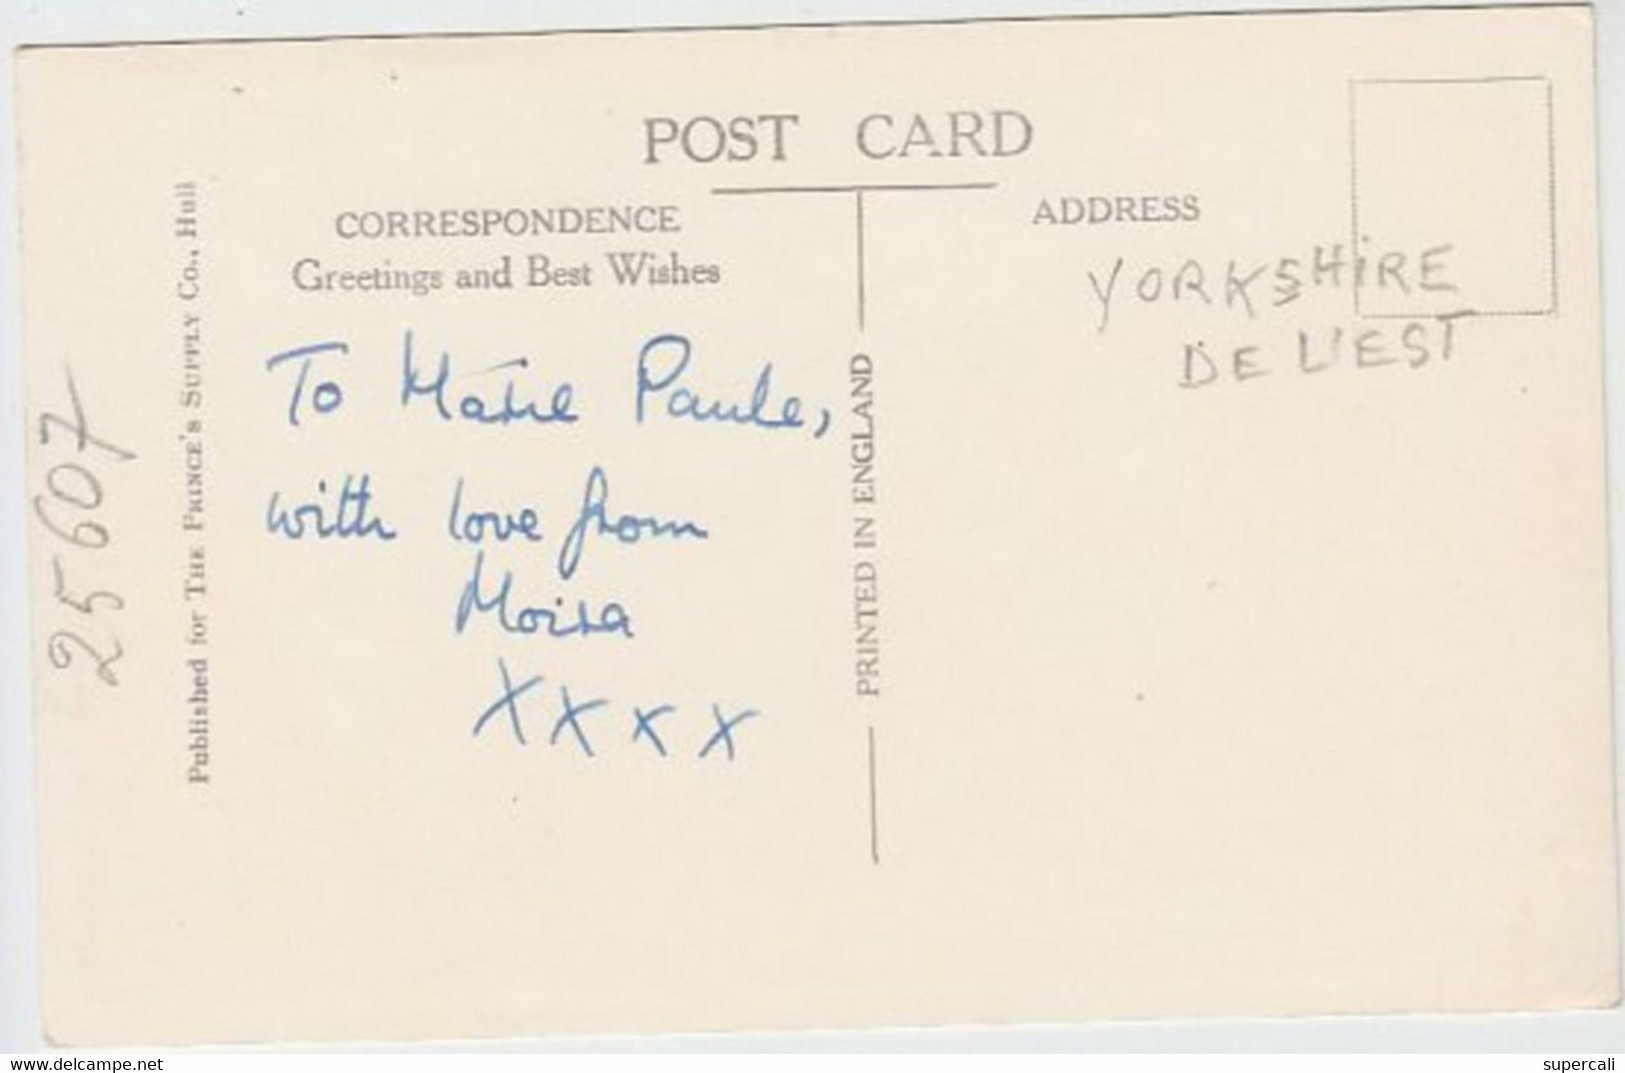 POST CARD
CORRESPONDENCE
Greetings and Best Wishes
To Marie Paule,
with love from
Moira
XXXX
ADDRESS
YORKSHIRE
DE L'EST
PRINTED IN ENGLAND
Published for THE PRINCE'S SUPPLY Co., Hull
25607
www.delcampe.net
supercali